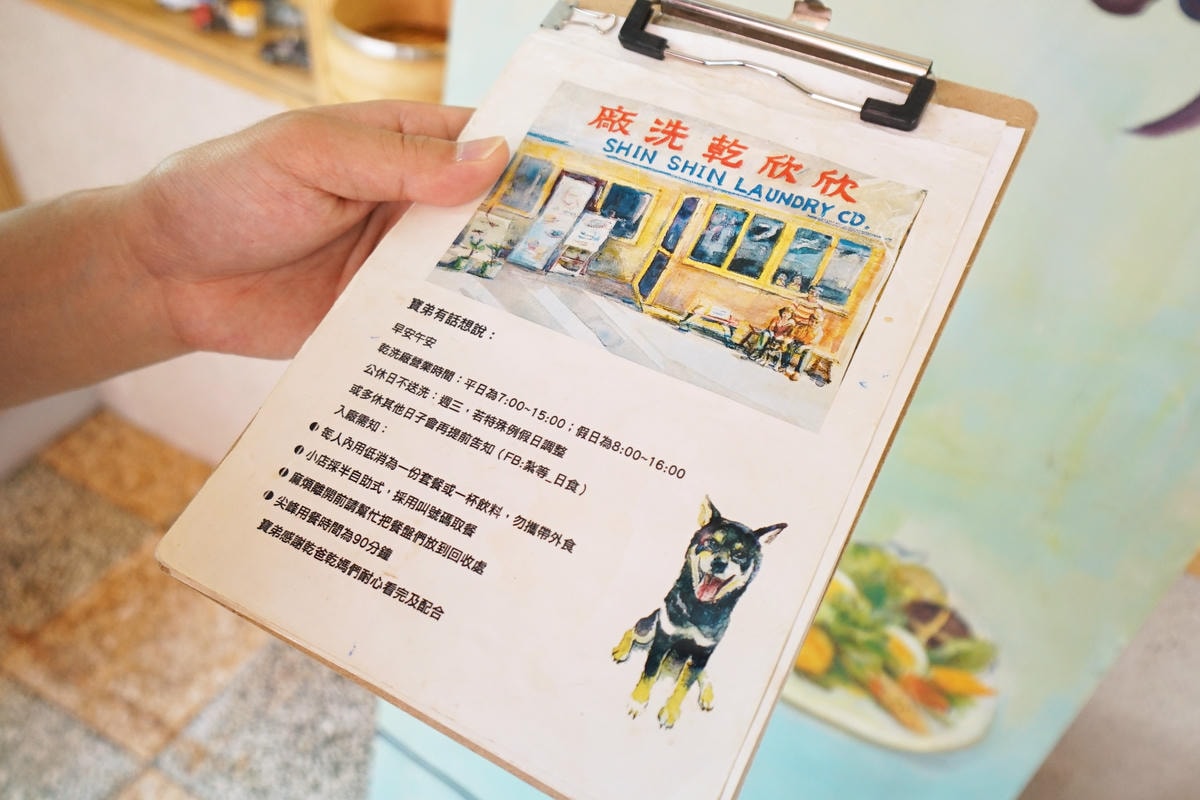 廠洗乾欣欣
SHIN SHIN LAUNDRY CO.
寶弟有話想說：
早安午安
乾洗廠營業時間：平日為7:00~15:00；假日為8:00~16:00
公休日不送洗：週三，若特殊例假日調整
或多休其他日子會再提前告知（FB:紮等_日食）
入廠需知：
每人內用低消為一份套餐或一杯飲料，勿攜帶外食
小店採半自助式，採用叫號碼取餐
麻煩離開前請幫忙把餐盤們放到回收處
尖峰用餐時間為90分鐘
寶弟感謝乾爸乾媽們耐心看完及配合